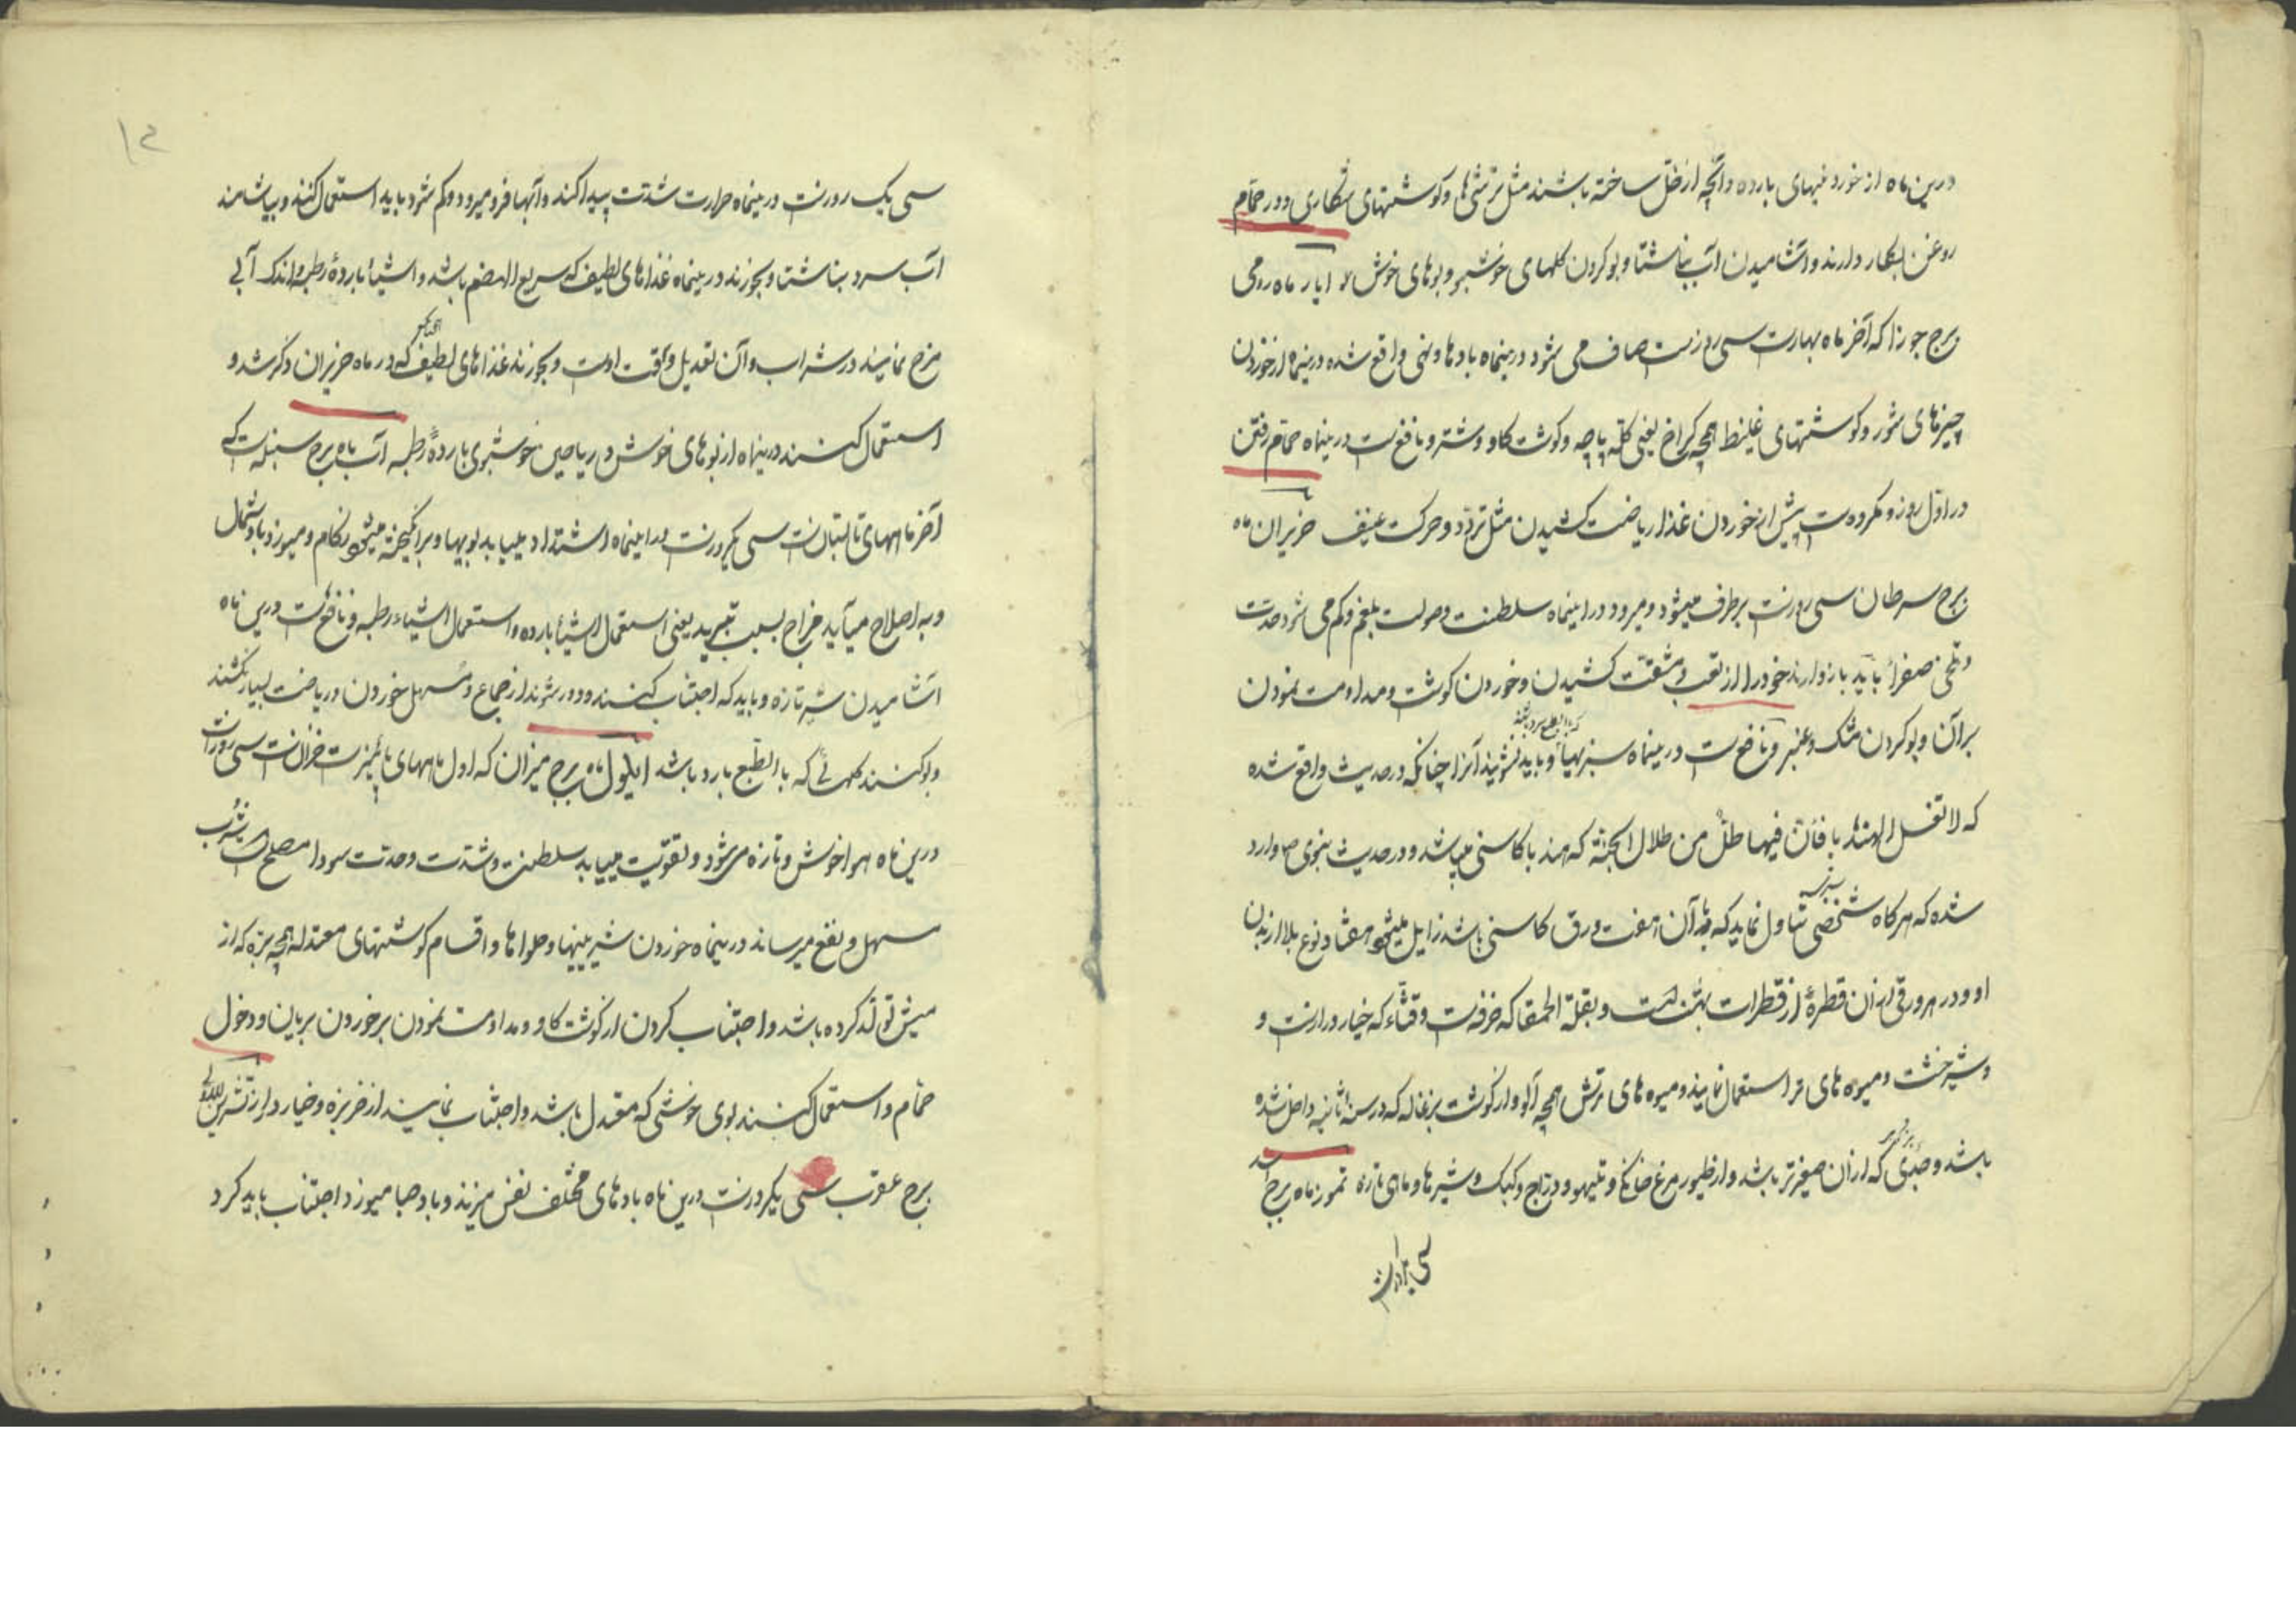 درین ماه از خوردنیهای بارده و آنچه از خل ساخته باشند مثل ترشی ها و گوشتهای شکاری و در حمام
روغن بکار دارند و آشامیدن آب بناشتا و بو کردن گلهای خوشبو و بوهای خوش ایار ماه رومی
برج جوزا که آخر ماه بهارست سی روزست صاف می شود درینماه بادها و نهی واقع شده درینماه از خوردن
چیزهای شور و گوشتهای غلیظ همچه کراخ یعنی کله پاچه و گوشت گاو و شتر و نافع ست درینماه حمام رفتن
در اول روز و مکروه ست پیش از خوردن غذا ریاضت کشیدن مثل تردد و حرکت عنیف حزیران ماه
برج سرطان سی روزست برطرف میشود و میرود در اینماه سلطنت و صولت بلغم و کم می شود حدت
و صفرا باید باز دارند خود را از تعب و مشقت کشیدن و خوردن گوشت و مداومت نمودن
بر آن و بو کردن مشک و عنبر و نافع ست درینماه سبزیها و باید نشویند آنرا چنانکه در حدیث واقع شده
که لا تغسل الهندبا فان فیها طل من طلال الجنة که هندبا کاسنی میباشد و در حدیث نبوی ص وارد
شده که هرگاه شخصی تناول نماید که در آن هفت ورق کاسنی باشد زایل میشود هفتاد نوع بلا از بدن
او و در هر ورقی از آن قطرهٔ از قطرات بهشت است و بقلة الحمقا که خرفه ست و قثاء که خیار درازست و
و شیرخشت و میوه های تر استعمال نمایند و میوه های ترش همچه آلو و از گوشت بزغاله که در سن ثانیه داخل شده
باشد و جدی که از آن صغیرتر باشد و از طیور مرغ خانگی و تیهو و دراج و کبک و شیرها و ماهی تازه تموز ماه برج اسد
سی یک روزست درینماه حرارت شدت پیدا کند و آبها فرو میرود و کم شود باید استعمال کنند و بیاشامند
آب سرد بناشتا و بخورند درینماه غذاهای لطیف که سریع الهضم باشد و اشیاء باردهٔ رطبه و اندک آبی
مزج نمایند در شراب و آن تعدیل وقت اوست و بخورند غذاهای لطیف که در ماه حزیران ذکر شد و
استعمال کنند درینماه از بوهای خوش و ریاحین خوشبوی باردهٔ رطبه آب ماه برج سنبله ست که
آخر ماههای تابستان ست سی یکروزست در اینماه اشتداد مییابد بویها و برانگیخته میشود زکام و میوزد باد شمال
و به اصلاح میآید مزاج بسبب تبرید یعنی استعمال اشیاء بارده و استعمال اشیاء رطبه و نافع ست درین ماه
آشامیدن شیر تازه و باید که اجتناب کنند و دور شوند از جماع و مسهل خوردن و ریاضت بسیار نکشند
و بو کنند گلهائی که بالطبع بارد باشد ایلول ماه برج میزان که اول ماههای پائیزست خزان ست سی روزست
درین ماه هوا خوش و تازه میشود و تقویت مییابد سلطنت و شدت و حدت سودا مصلح است شرب
مسهل و نفع میرساند درینماه خوردن شیرینیها و حلواها و اقسام گوشتهای معتدله همچه بزه که از
میش تولد کرده باشد و اجتناب کردن از گوشت گاو و مداومت نمودن بر خوردن بریان و دخول
حمام و استعمال کنند بوی خوشی که معتدل باشد و اجتناب نمایند از خربزه و خیار دراز تشرین الاول
برج عقرب سی یکروزست درین ماه بادهای مختلف نفس میزند و باد صبا میوزد اجتناب باید کرد